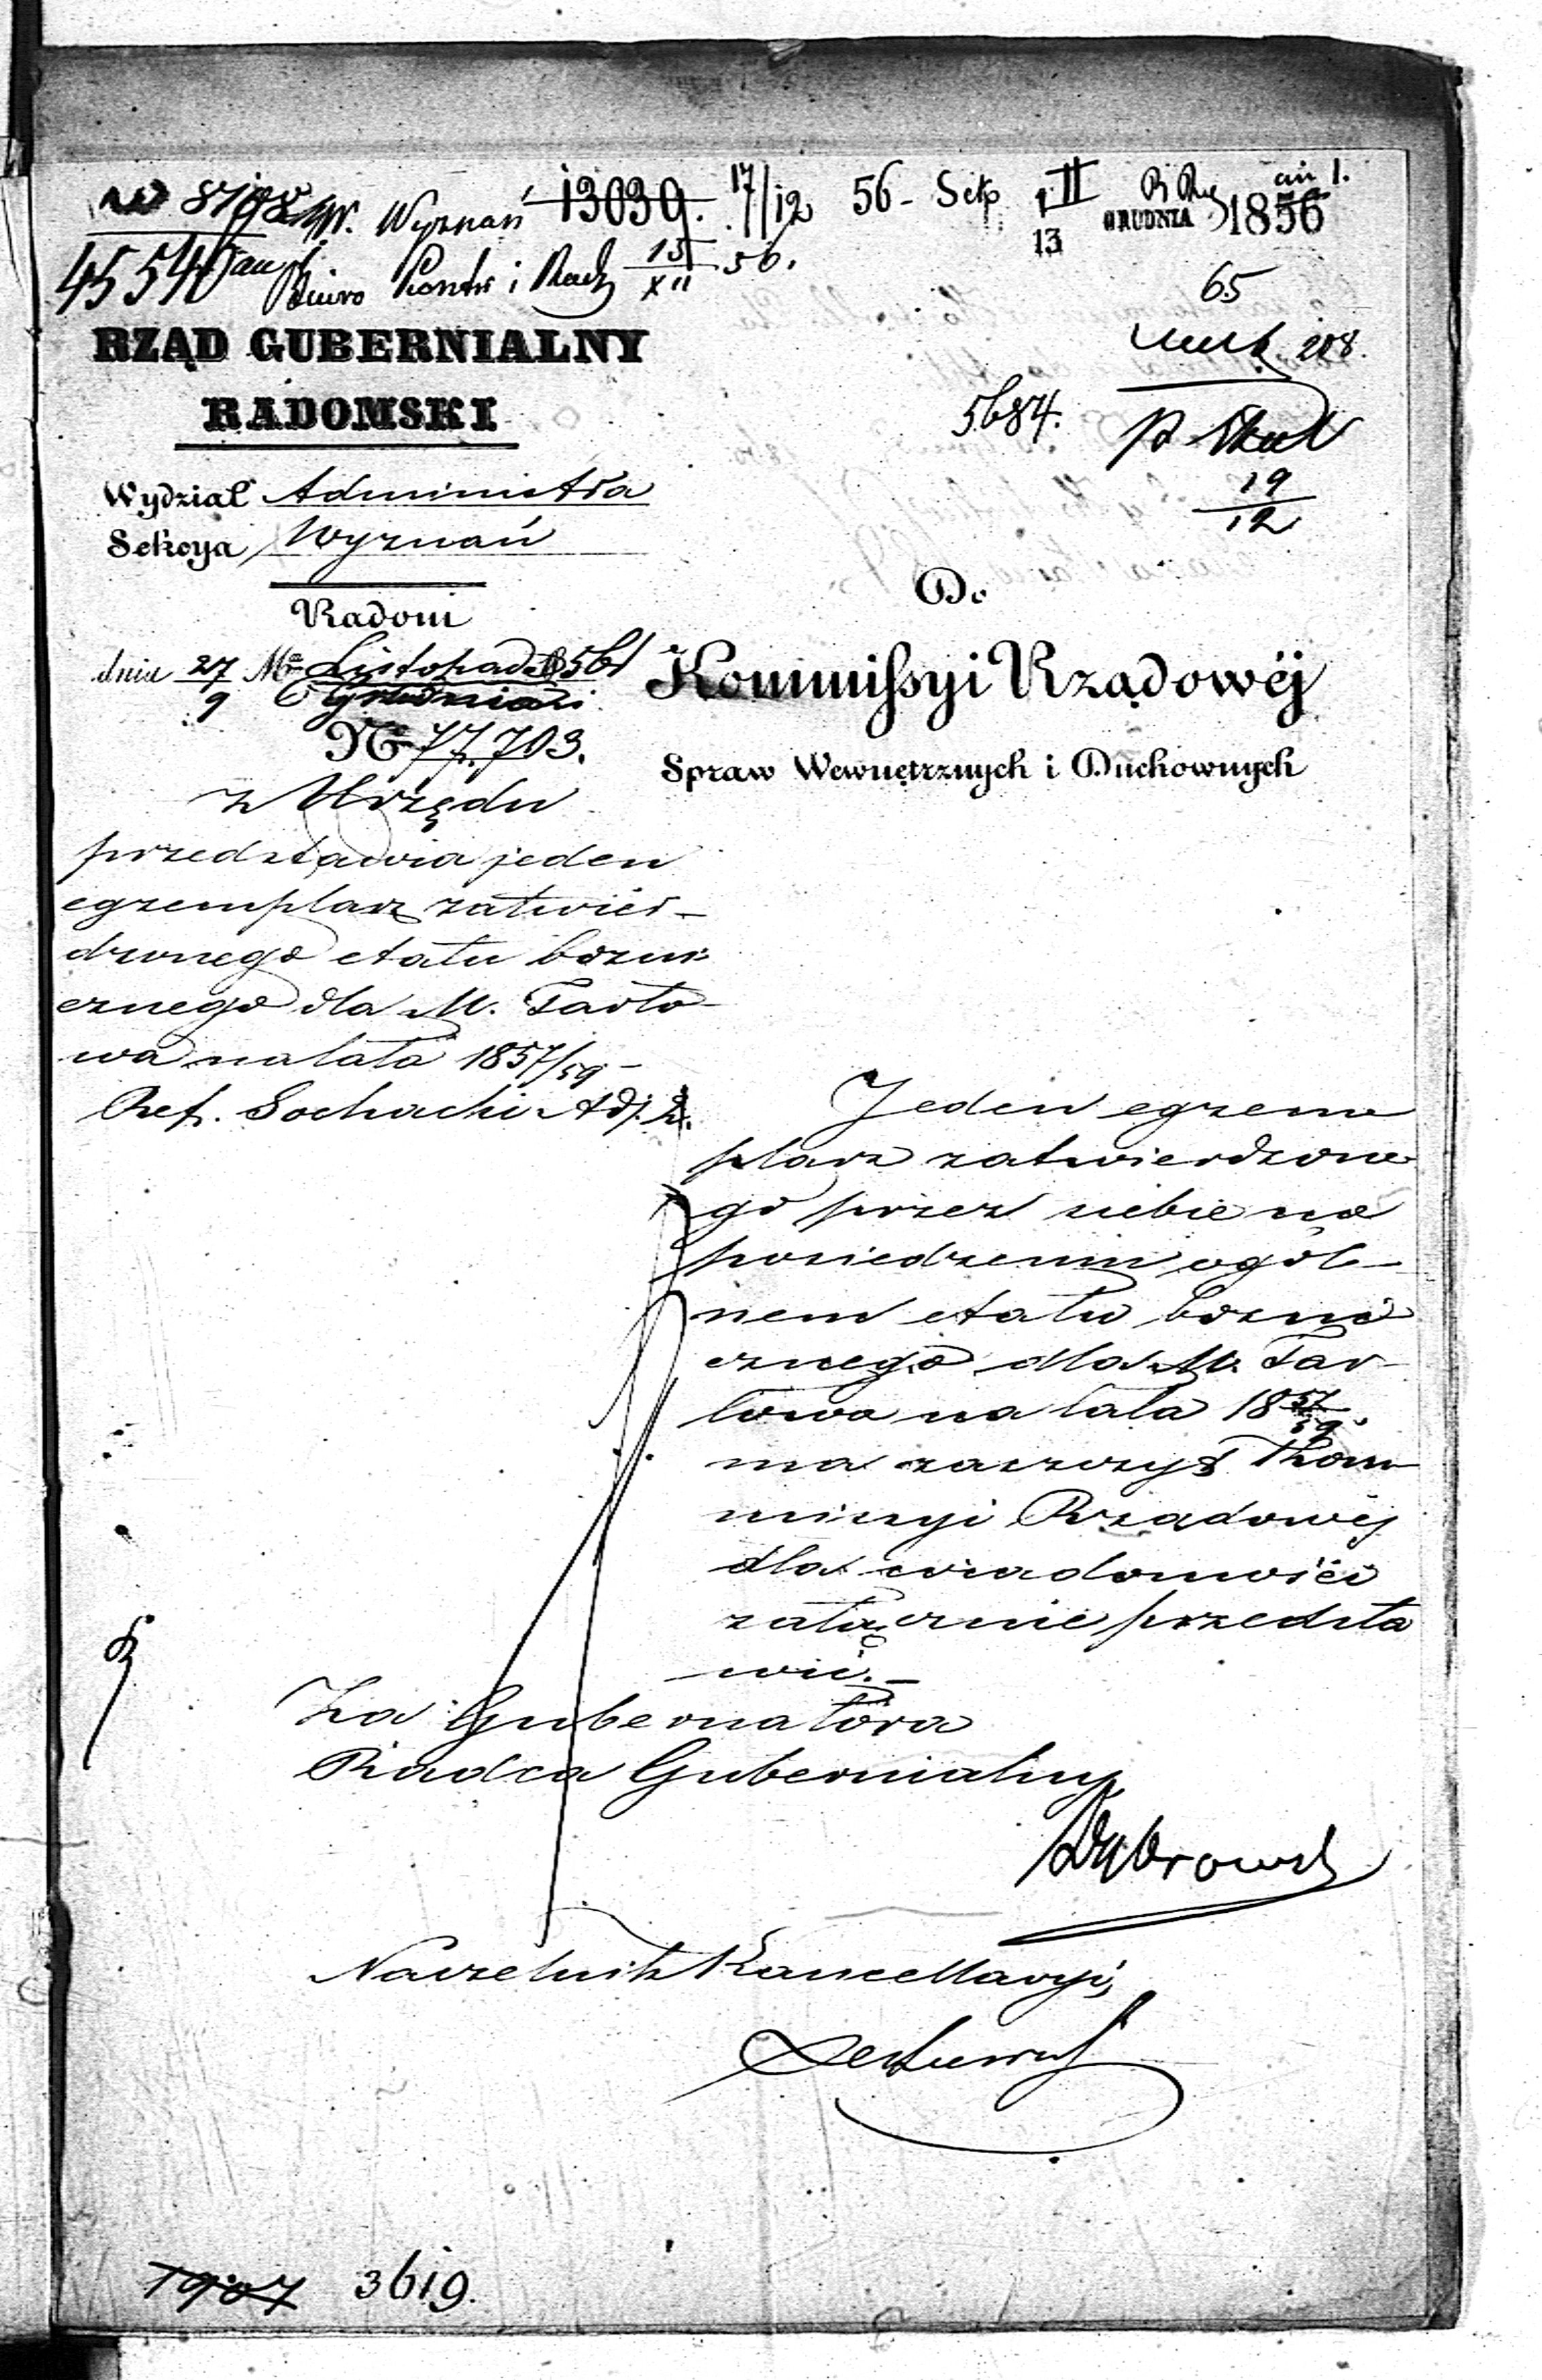 No 8798 W. Wyznań 13039. 17/12 56 - Sek II
13 GRUDNIA 1856
45540 Biuro Kontr i Rach 15/XII 56.
65
208.
5684.
19/12
RZĄD GUBERNIALNY
RADOMSKI
Wydział Administra
Sekcya Wyznań
Radom
dnia 27/9 Mca Listopada/Grudnia 1856 r.
No 77.703.
Do
Kommissyi Rządowéj
Spraw Wewnętrznych i Duchownych
z Urzędu
przedstawia jeden
egzemplarz zatwier-
dzonego etatu bożni
cznego dla M. Tarło-
wa na lata 1857/59 -
Ref. Sochacki Adj.
Jeden egzem
plarz zatwierdzone
go przez siebie na
posiedzeniu ogól-
nem etatu bożni
cznego dla M. Tar-
łowa na lata 1857/59.
ma zaszczyt Kom-
missyi Rządowéj
dla wiadomości
załącznie przedsta
wić. -
Za Gubernatora
Radca Gubernialny
Dąbrowski
Naczelnik Kancellaryi,
1907 3619.